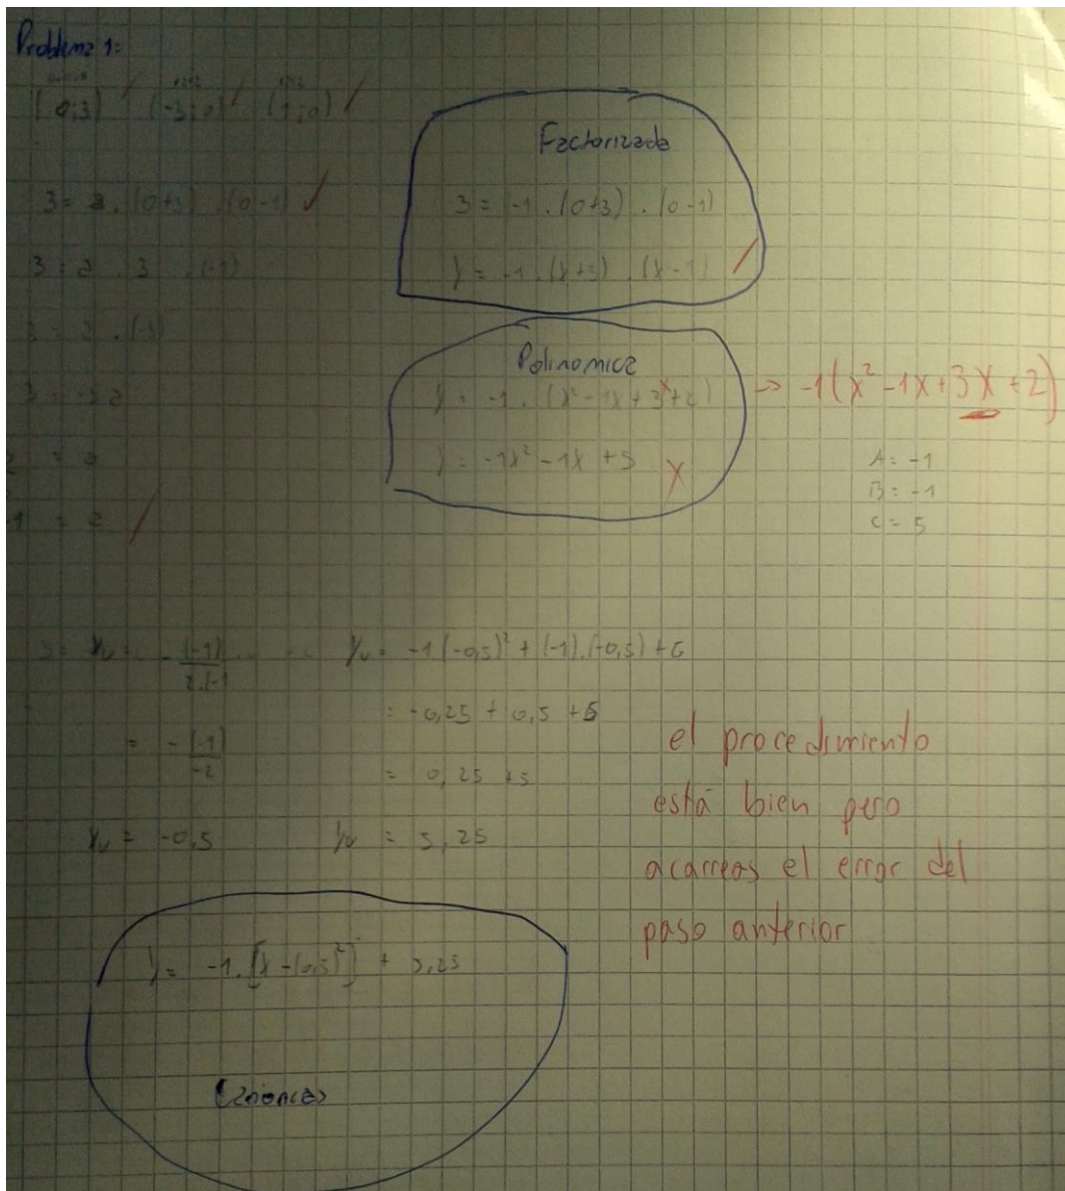 Problema 1:
(0;3) (-3;0) (1;0)
3 = a . (0+3) . (0-1)
3 = a . 3 . (-1)
3 = a . (-3)
3 = -3a
= a
-1 = a
Factorizada
3 = -1 . (0+3) . (0-1)
y = -1 . (x+3) . (x-1)
Polinomica
y = -1 . (x² - 1x + 3x + 2)
y = -1x² - 1x + 5 X
→ -1(x² - 1x + 3x + 2)
A = -1
B = -1
C = 5
Xv = - (-1)
2.(-1
= - (-1)
-2
Xv = -0,5
Yv = -1(-0,5)² + (-1).(-0,5) + 5
= -0,25 + 0,5 + 5
= 0,25 + 5
Yv = 5,25
el procedimiento
está bien pero
acarreas el error del
paso anterior
y = -1.[x - (0,5)²] + 5,25
Canonica